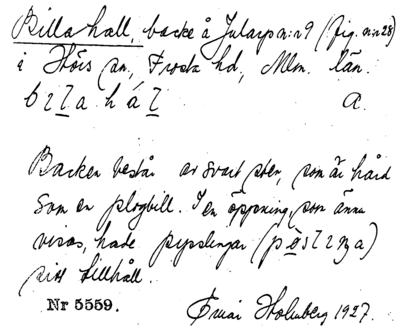 Billahall, backe å Jularp n:r 9 (fig. n:r 28)
i Höörs sn, Frosta hd, Mlm. län.
bɪlahál a.
Backen består av svart sten, som är hård
som en plogbill. I en öppning, som ännu
visas, hade pysslingar
sitt tillhåll.
Nr 5559. Holmberg 1927.